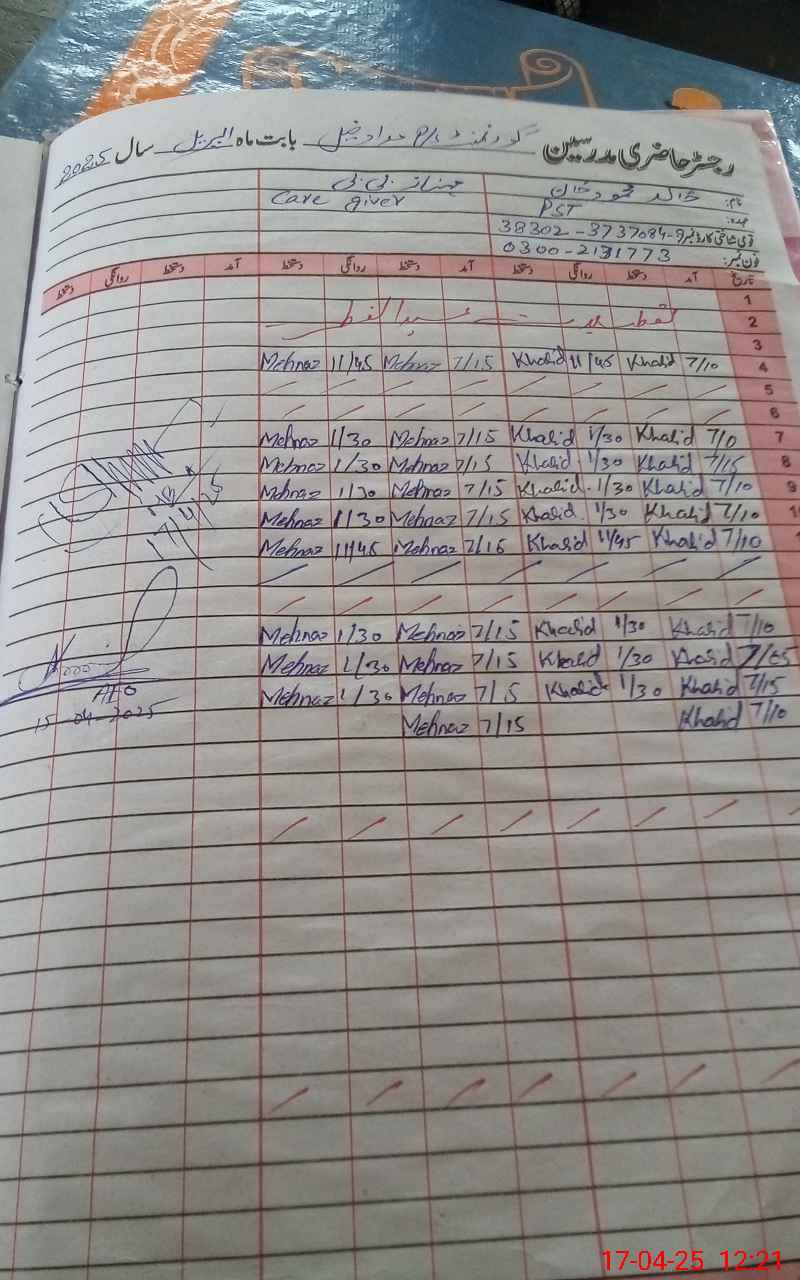 رجسٹر حاضری مدرسین گورنمنٹ P/S بابت ماہ اپریل سال 2025
نام: خالد محمود خان مہناز بی بی
عہدہ: PST Care giver
قومی شناختی کارڈ نمبر 38302-3737084-9
فون نمبر: 0300-2131773
تاریخ آمد دستخط روانگی دستخط آمد دستخط روانگی دستخط آمد دستخط روانگی دستخط
1
2 عید الفطر
3
Mehnaz 11/45 Mehnaz 7/15 Khalid 11/45 Khalid 7/10 4
5
6
Mehnaz 1/30 Mehnaz 7/15 Khalid 1/30 Khalid 7/10 7
Mehnaz 1/30 Mehnaz 7/15 Khalid 1/30 Khalid 7/15 8
Mehnaz 1/30 Mehnaz 7/15 Khalid 1/30 Khalid 7/10 9
Mehnaz 1/30 Mehnaz 7/15 Khalid 1/30 Khalid 7/10 10
Mehnaz 11/45 Mehnaz 7/15 Khalid 11/45 Khalid 7/10
17/4/25
Mehnaz 1/30 Mehnaz 7/15 Khalid 1/30 Khalid 7/10
Mehnaz 1/30 Mehnaz 7/15 Khalid 1/30 Khalid 7/05
Mehnaz 1/30 Mehnaz 7/15 Khalid 1/30 Khalid 7/15
Mehnaz 7/15 Khalid 7/10
AEO
15-04-2025
17-04-25 12:21